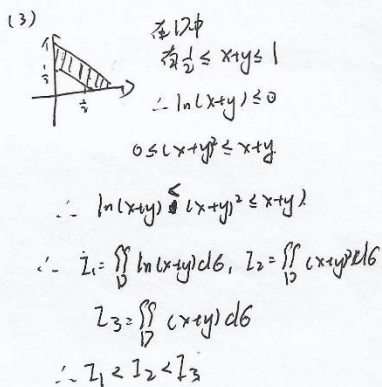 (3)
1
1/2
1/2
在D中
有1/2 ≤ x+y ≤ 1
∴ ln(x+y) ≤ 0
0 ≤ (x+y)² ≤ x+y
∴ ln(x+y) < (x+y)² ≤ x+y)
∴ I₁ = ∬_D ln(x+y)dσ, I₂ = ∬_D (x+y)²dσ
I₃ = ∬_D (x+y) dσ
∴ I₁ < I₂ < I₃